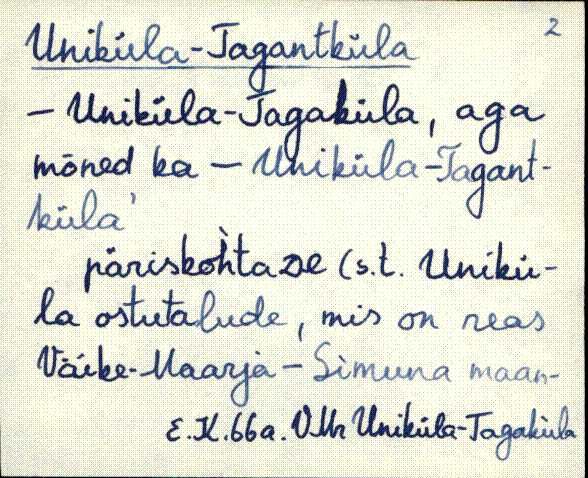 2
Uniküla-Tagantküla
– Uniküla-Tagaküla, aga
mõned ka – Uniküla-Tagant-
küla'
päriskòhtaɒe (s.t. Unikü-
la ostutalude, mis on reas
Väike-Maarja – Simuna maan-
E.K. 66a. VMr Uniküla-Tagaküla